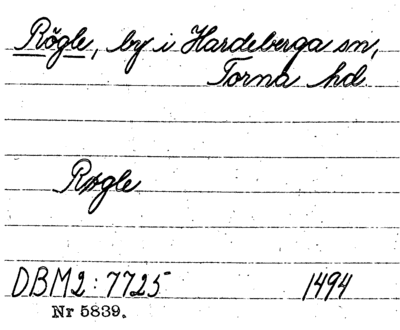 Rögle, by i Hardeberga sn,
Torna hd.
Røgle
DBM2:7725 1494
Nr 5839.